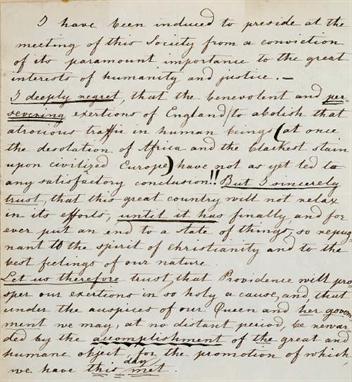 I have been induced to preside at the
meeting of this Society from a conviction
of its paramount importance to the great
interests of humanity and justice. —
I deeply regret, that the benevolent and per
severing exertions of England/to abolish that
atrocious traffic in human beings (at once
the desolation of Africa and the blackest stain
upon civilized Europe) have not as yet led to
any satisfactory conclusion!! But I sincerely
trust, that this great country will not relax
in its efforts, until it has finally, and for
ever put an end to a state of things, so repug
nant to the spirit of christianity and to the
best feelings of our nature
Let us therefore trust, that Providence will pro
sper our exertions in so holy a cause, and that
under the auspices of our Queen and her govern
ment we may, at no distant period, be rewar
ded by the accomplishment of the great and
humane object, for the promotion of which,
we have this day met.